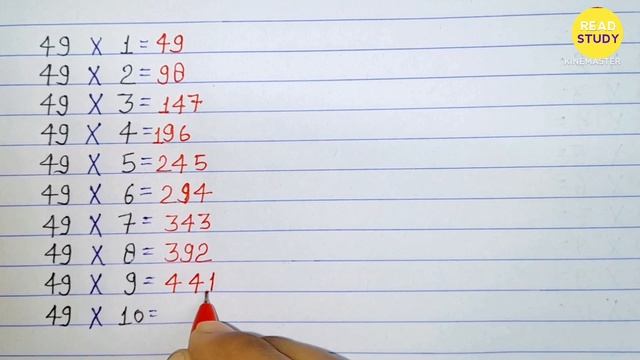 READ
STUDY
KINEMASTER
49 X 1 = 49
49 X 2 = 98
49 X 3 = 147
49 X 4 = 196
49 X 5 = 245
49 X 6 = 294
49 X 7 = 343
49 X 8 = 392
49 X 9 = 441
49 X 10 =